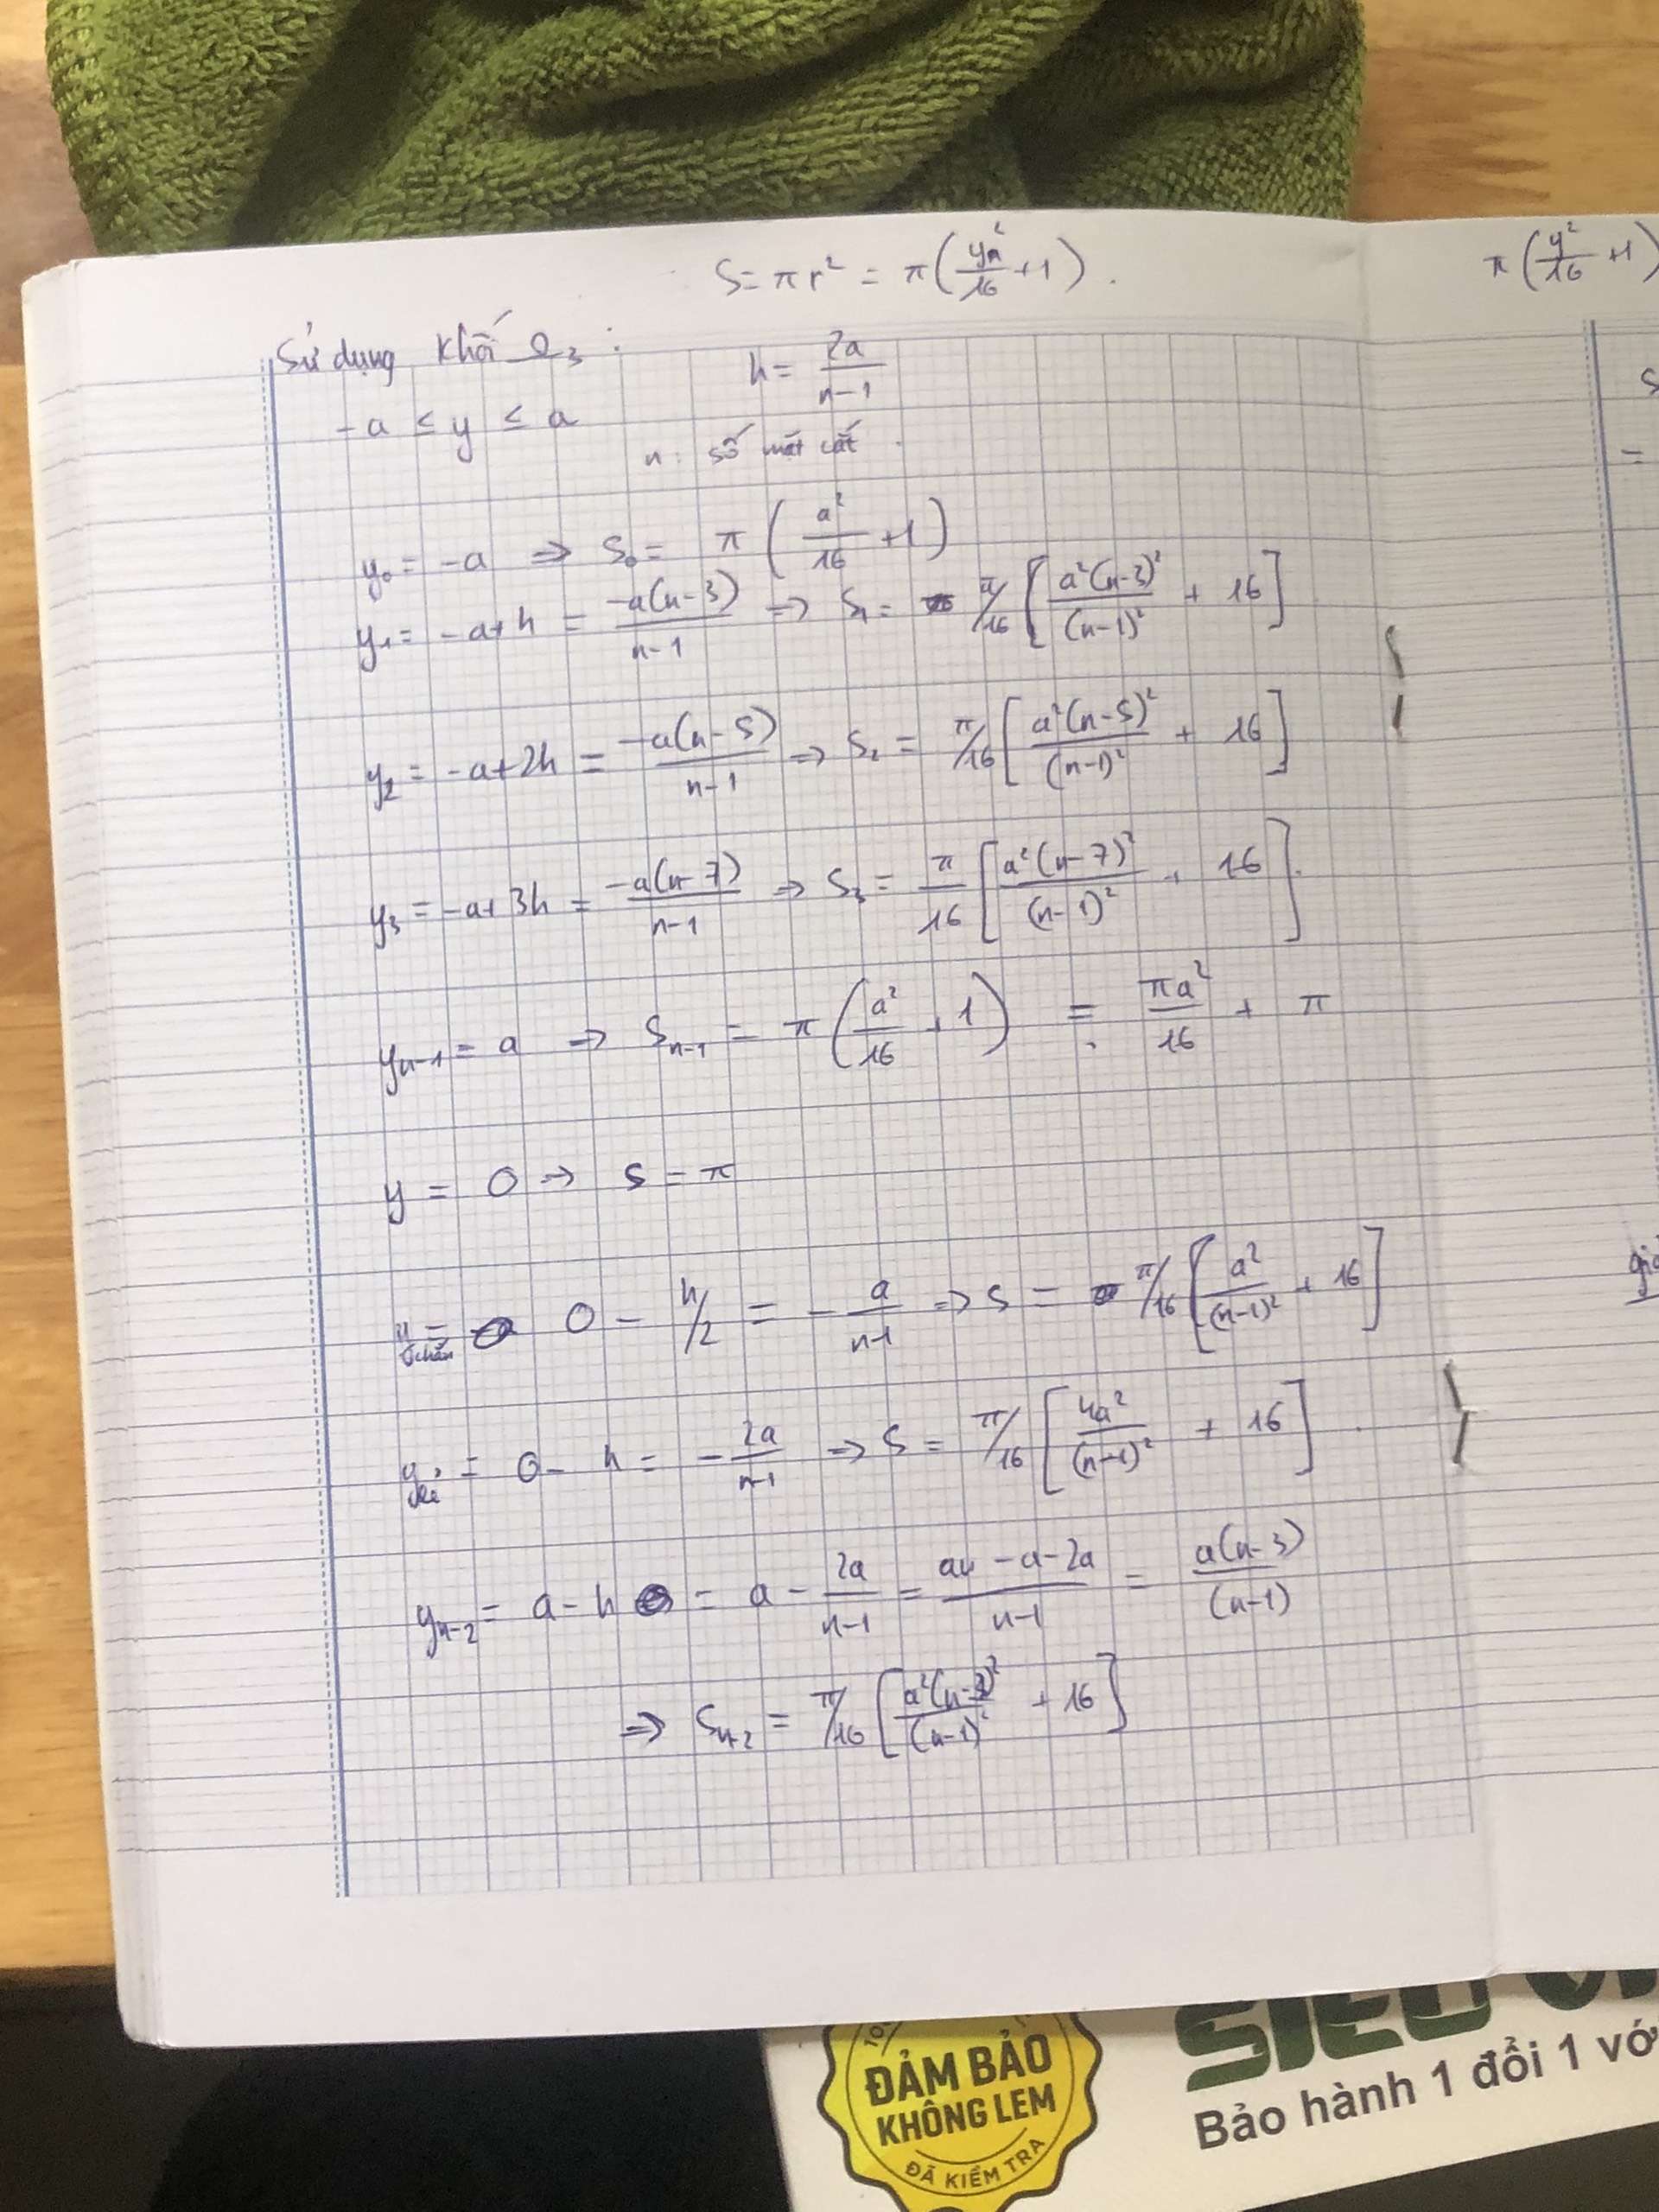 S = πr² = π(yn²/16 + 1).
π(y²/16 + 1)
Sử dụng khối Q₃ :
h = 2a/(n-1)
-a ≤ y ≤ a
n : số mặt cắt.
y₀ = -a ⇒ S₀ = π(a²/16 + 1)
y₁ = -a+h = -a(n-3)/(n-1) ⇒ S₁ = π/16 [a²(n-3)²/(n-1)² + 16]
y₂ = -a+2h = -a(n-5)/(n-1) ⇒ S₂ = π/16 [a²(n-5)²/(n-1)² + 16]
y₃ = -a+3h = -a(n-7)/(n-1) ⇒ S₃ = π/16 [a²(n-7)²/(n-1)² + 16].
yₙ₋₁ = a ⇒ Sₙ₋₁ = π(a²/16 + 1) = πa²/16 + π
y = 0 ⇒ S = π
y chẵn = 0 - h/2 = - a/(n-1) ⇒ S = π/16 [a²/(n-1)² + 16]
y lẻ = 0 - h = - 2a/(n-1) ⇒ S = π/16 [4a²/(n-1)² + 16].
yₙ₋₂ = a - h = a - 2a/(n-1) = (an - a - 2a)/(n-1) = a(n-3)/(n-1)
⇒ Sₙ₋₂ = π/16 [a²(n-3)²/(n-1)² + 16]
S
=
ĐẢM BẢO
KHÔNG LEM
ĐÃ KIỂM TRA
Bảo hành 1 đổi 1 vớ